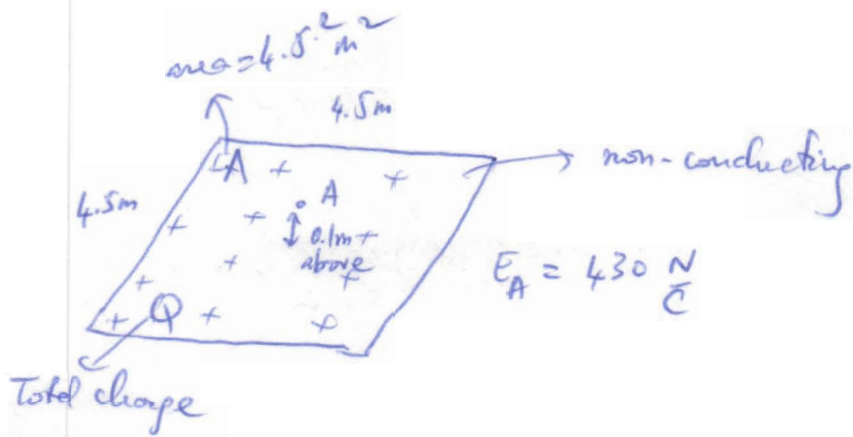 area = 4.5² m²
4.5m
A + + → non-conducting
4.5m
A
0.1m
above
E_A = 430 N/C
Q
Total charge